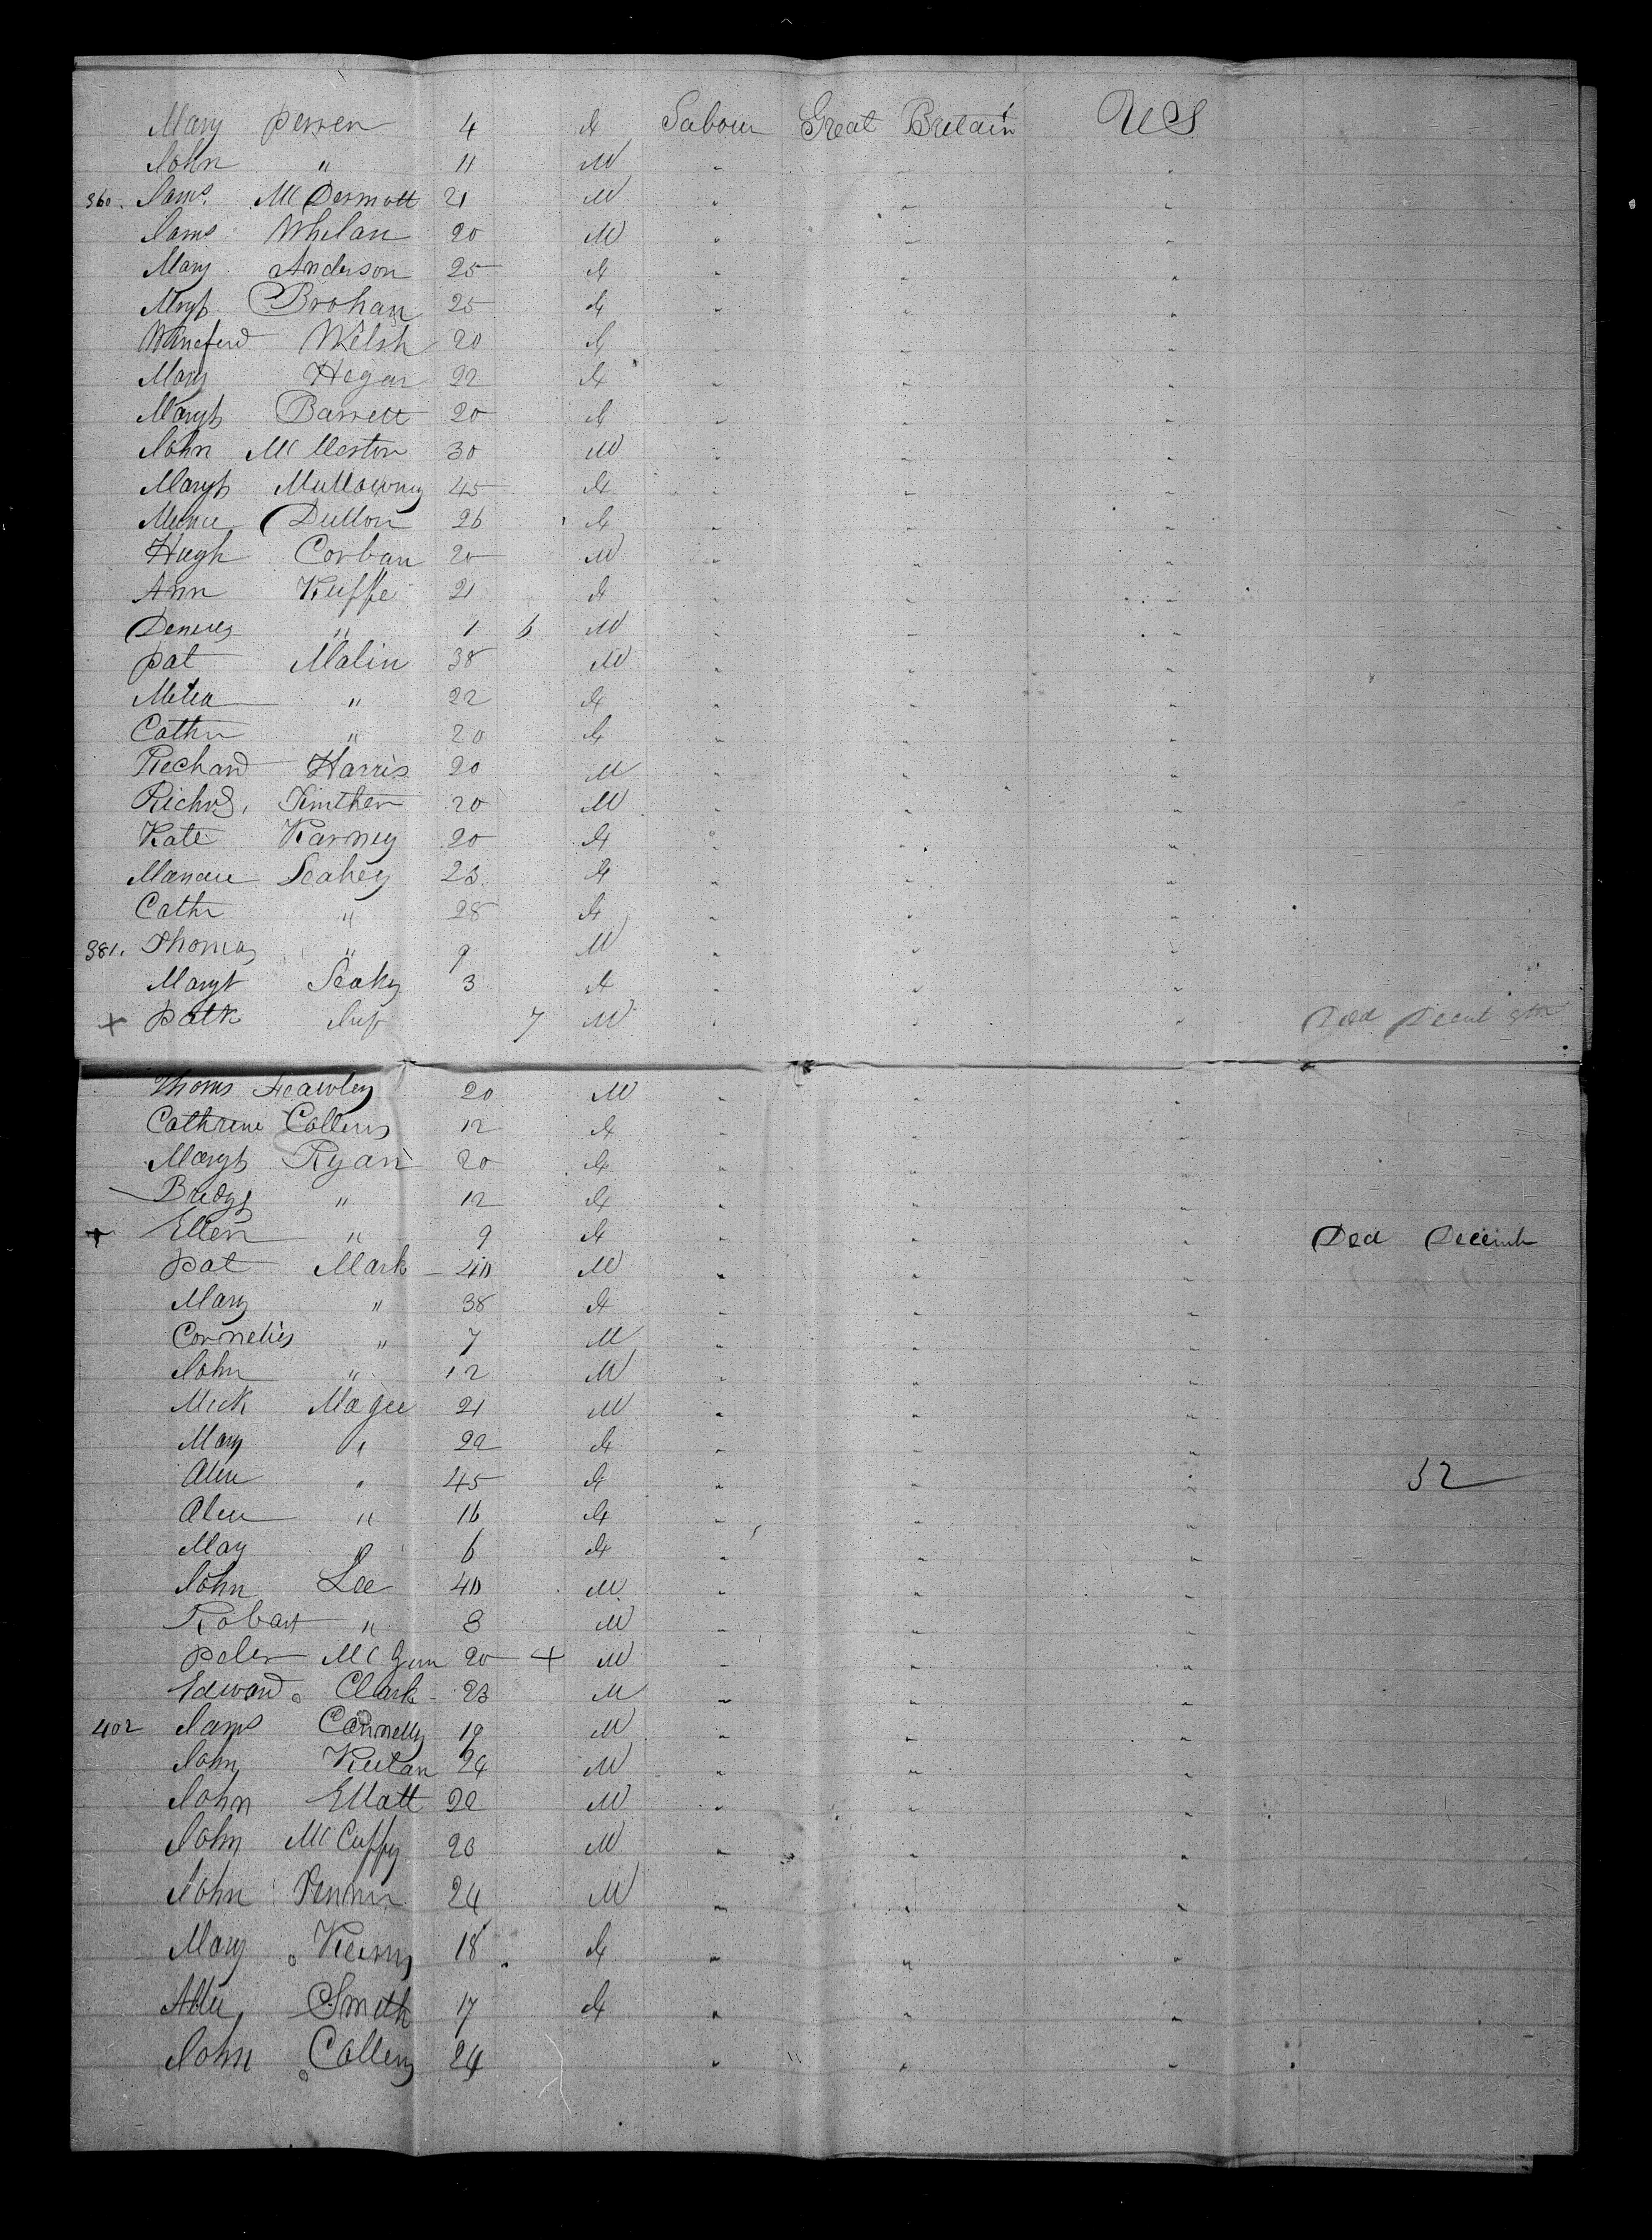 Mary Perren 4 F Labour Great Britain US
John " 11 M " " "
360. Jams McDermott 21 M " " "
Jams Whelan 20 M " " "
Mary Anderson 25 F " " "
Margt Brohan 25 F " " "
Wineferd Welsh 20 F " " "
Mary Hegan 22 F " " "
Margt Barrett 20 F " " "
John 30 M " " "
Margt Mullowny 45 F " " "
Dullon 26 F " " "
Hugh Corban 20 M " " "
Ann Kuffe 21 F " " "
" 1 6 M " " "
Pat Malin 38 M " " "
" 22 F " " "
Cathn " 20 F " " "
Rechard Harris 20 M " " "
Richd. 20 M " " "
Kate Karney 20 F " " "
Leahey 23 F " " "
Cathr " 28 F " " "
381. Thomas " 9 M " " "
Margt Leahy 3 F " " "
+ Patk Inft 7 M " " " Ded Decemt 9th
Thoms 20 M " " "
Cathrine Collens 12 F " " "
Margt Ryan 20 F " " "
Bredgt " 12 F " " "
+ Ellen " 9 F " " " Ded Decemb
Pat Mark 40 M " " "
Mary " 38 F " " "
Cornelies " 7 M " " "
John " 12 M " " "
Mick Magee 21 M " " "
Mary " 22 F " " "
" 45 F " " " 52
" 16 F " " "
May " 6 F " " "
John Lee 40 M " " "
Robart " 8 M " " "
Peter McGunn 20 + M " " "
Edward Clark 23 M " " "
402 Jams Connelly 19 M " " "
John Keelan 24 M " " "
John Ellatt 22 M " " "
John McCuffy 23 M " " "
John 24 M " " "
Mary 18 F " " "
Smeth 17 F " " "
John Collens 24 " " "